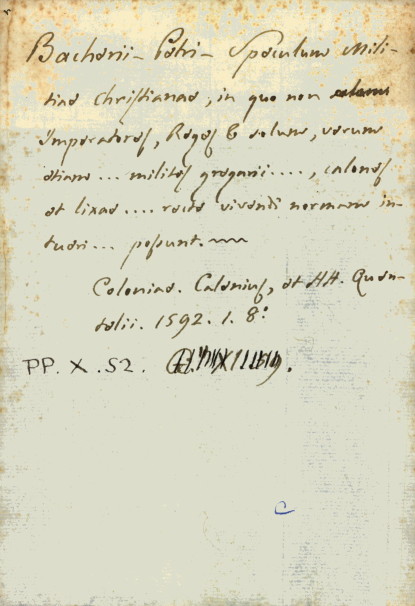 Bacherii - Petri - Speculum Mili-
tiae Christianae, in quo non
Imperatores, Reges & solum, verum
etiam ... milites gregarii ...., calones
et lixae .... recte vivendi normam in-
tueri ... possunt.
Coloniae. Calenius, et HH. Quen-
telii. 1592. 1. 8º
PP. X. 52.
C